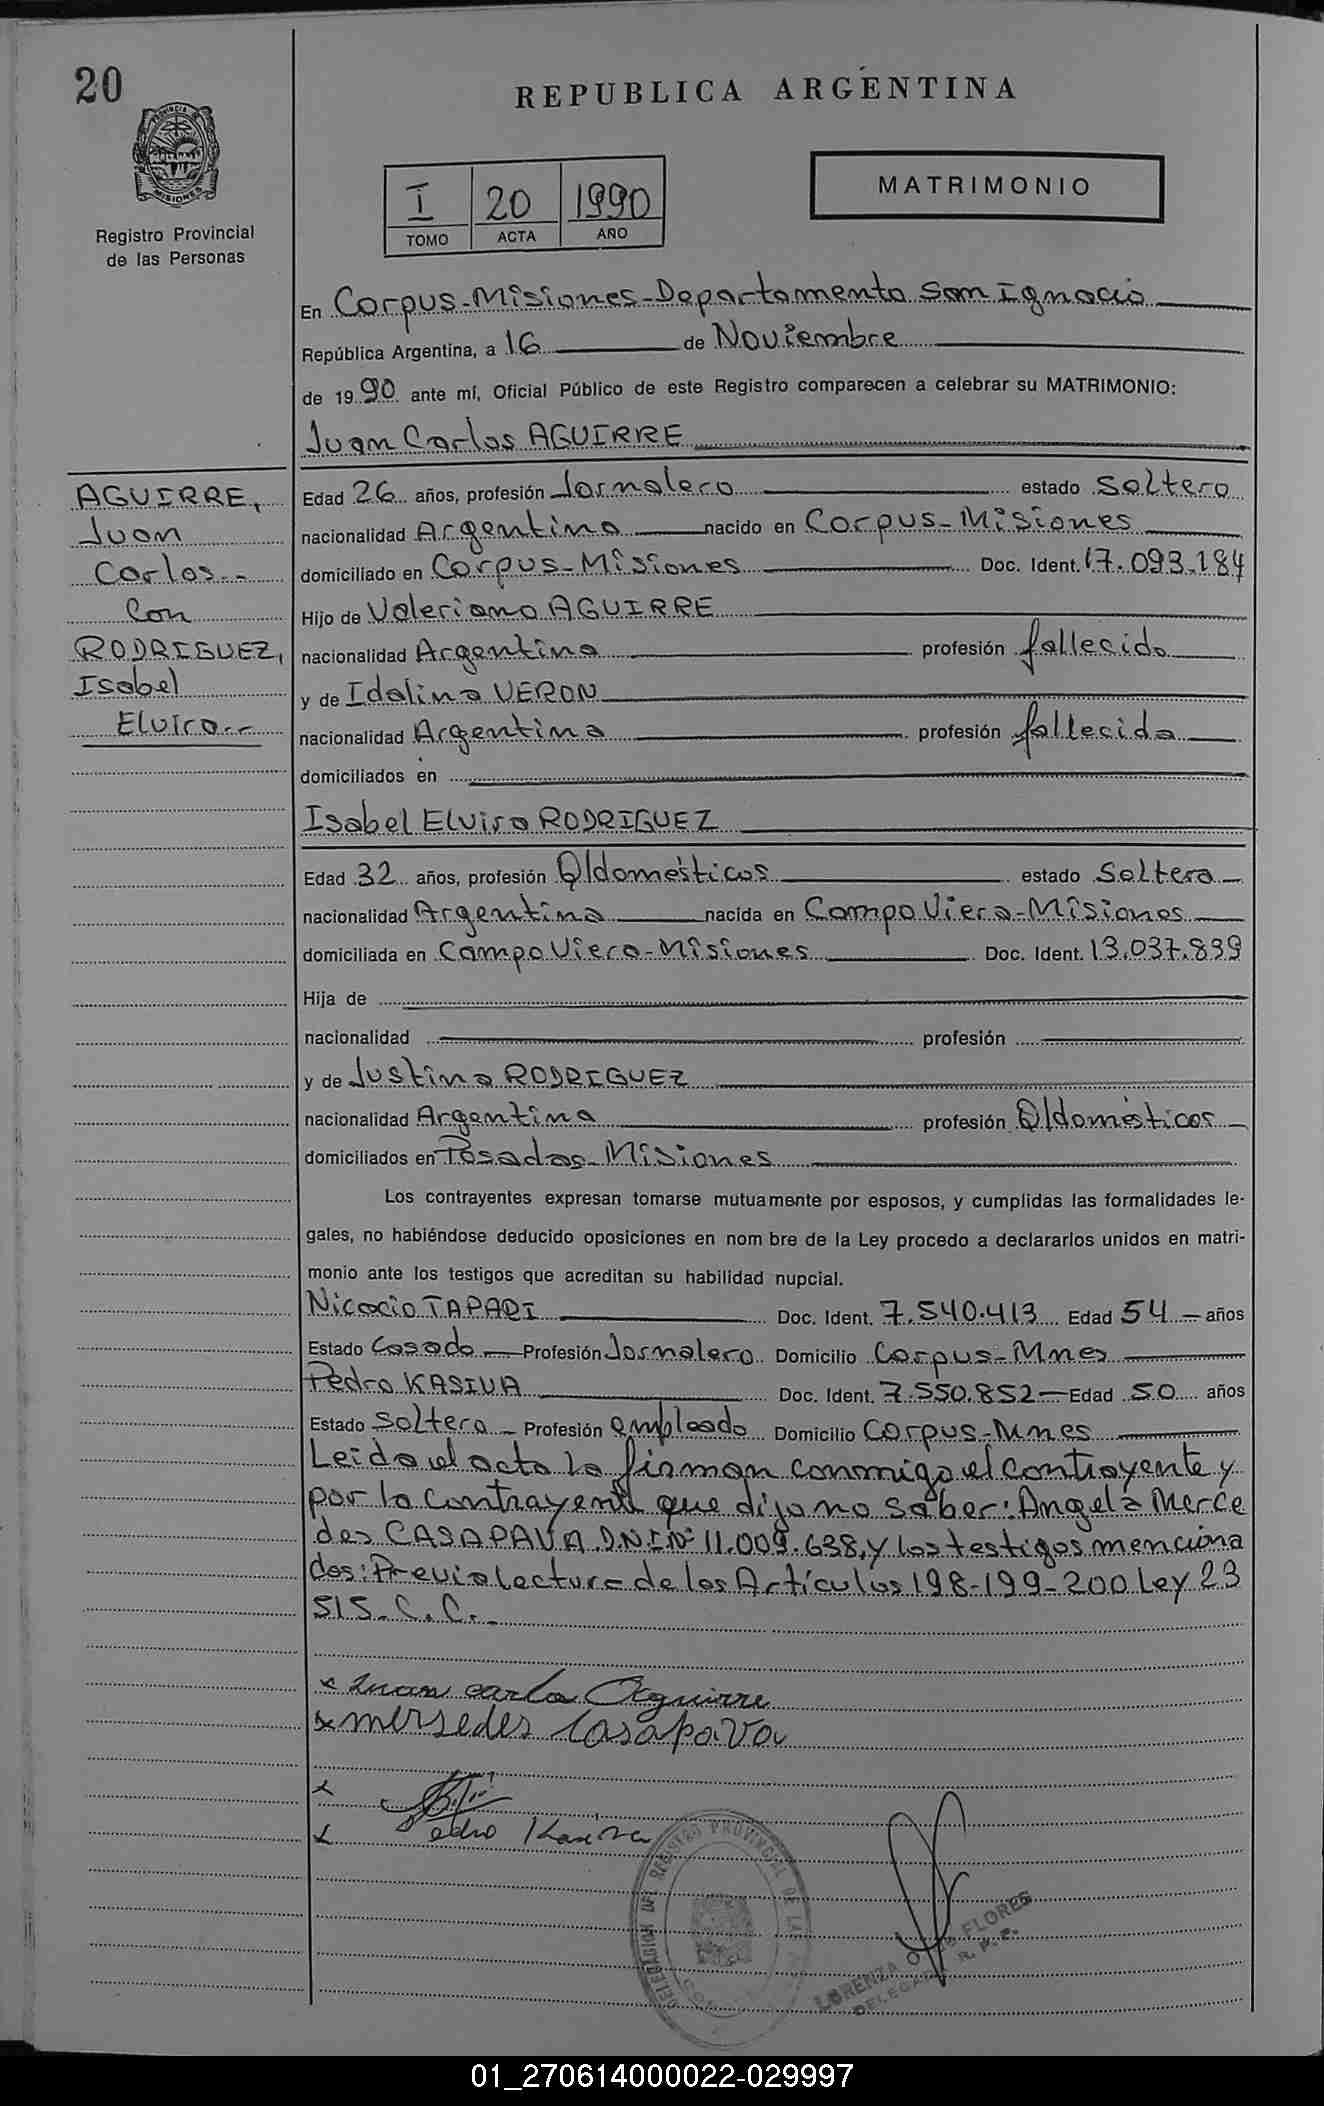 20
REPUBLICA ARGENTINA
PROVINCIA DE
MISIONES
Registro Provincial
de las Personas
I 20 1990
TOMO ACTA AÑO
MATRIMONIO
En Corpus-Misiones-Departamento San Ignacio
República Argentina, a 16 de Noviembre
de 1990 ante mí, Oficial Público de este Registro comparecen a celebrar su MATRIMONIO:
Juan Carlos AGUIRRE
AGUIRRE,
Juan
Carlos.-
Con
RODRIGUEZ,
Isabel
Elvira.-
Edad 26 años, profesión Jornalero estado Soltero
nacionalidad Argentina nacido en Corpus-Misiones
domiciliado en Corpus-Misiones Doc. Ident. 17.093.184
Hijo de Valeriano AGUIRRE
nacionalidad Argentina profesión fallecido
y de Idalina VERON
nacionalidad Argentina profesión fallecida
domiciliados en
Isabel Elvira RODRIGUEZ
Edad 32 años, profesión Q/domésticos estado Soltera
nacionalidad Argentina nacida en Campo Viera-Misiones
domiciliada en Campo Viera-Misiones Doc. Ident. 13.037.839
Hija de
nacionalidad profesión
y de Justina RODRIGUEZ
nacionalidad Argentina profesión Q/domésticos
domiciliados en Posadas-Misiones
Los contrayentes expresan tomarse mutuamente por esposos, y cumplidas las formalidades le-
gales, no habiéndose deducido oposiciones en nom bre de la Ley procedo a declararlos unidos en matri-
monio ante los testigos que acreditan su habilidad nupcial.
Nicacio TAPARI Doc. Ident. 7.540.413 Edad 54 años
Estado Casado Profesión Jornalero Domicilio Corpus-Mnes
Pedro KASIVA Doc. Ident. 7.550.852 Edad 50 años
Estado Soltero Profesión empleado Domicilio Corpus-Mnes
Leida el acta la firman conmigo el contrayente y
por la contrayente que dijo no saber: Angela Merce
des CASAPAVA D.N.I.Nº 11.009.638, y los testigos menciona
dos: Previa lectura de los Artículos 198-199-200 Ley 23
515. C.C.-
x Juan carlo Aguirre
x mersedes Casapava
x
x Pedro Kasiva
DELEGACION DEL REGISTRO PROVINCIAL DE LAS
LORENZA FLORES
DELEGADA R. P. P.
01_270614000022-029997